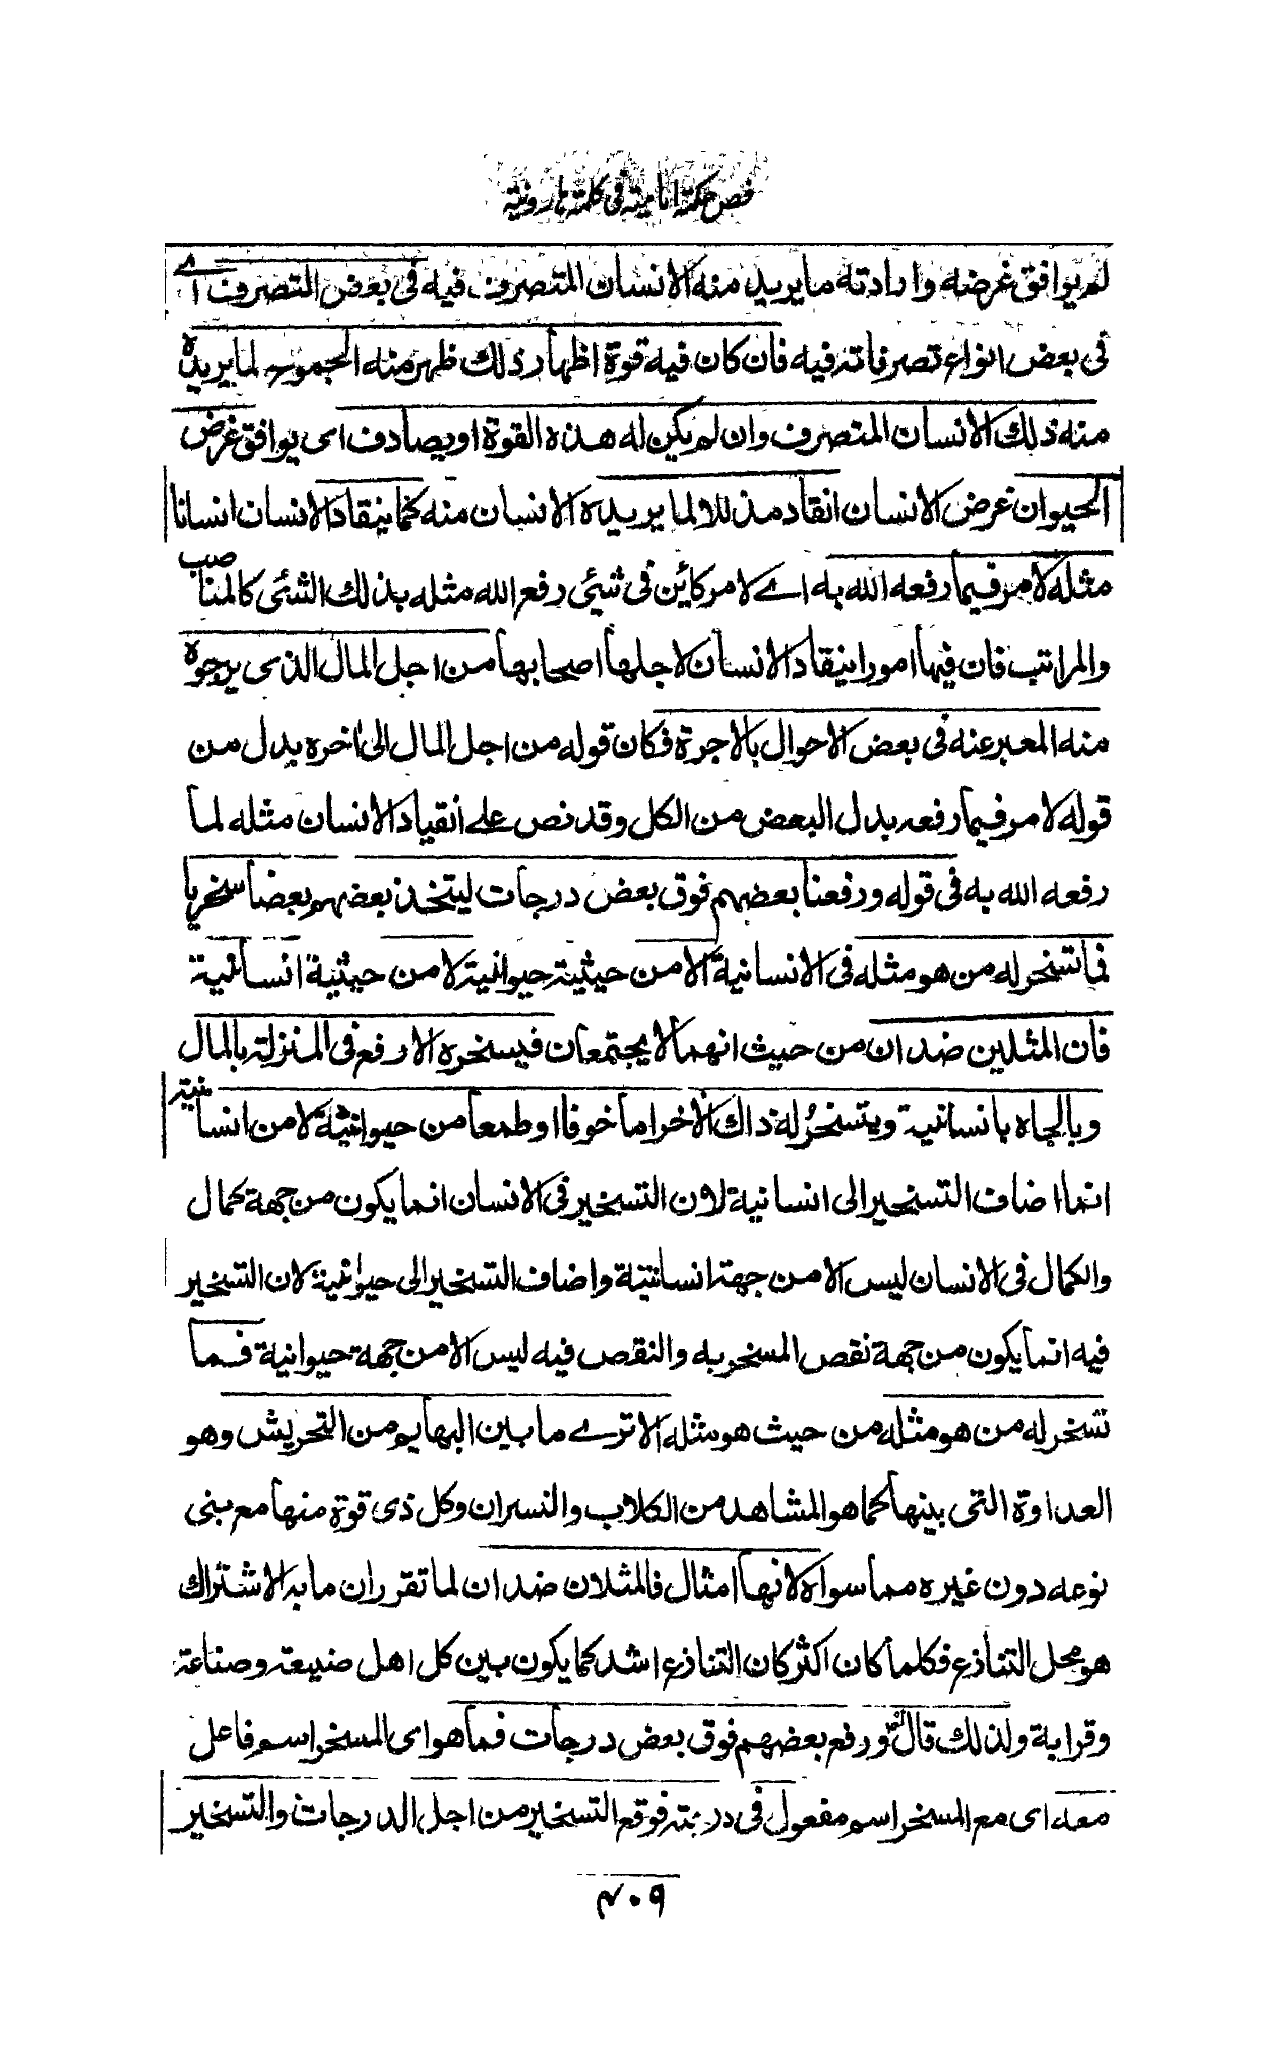 فص حكمة امامية في كلمة هارونية
لم يوافق غرضه وارادته ما يريد منه الانسان المتصرف فيه في بعض التصرف اے
في بعض انواع تصرفاته فيه فان كان فيه قوة اظهار ذلك ظهر منه الجموح لما يريده
منه ذلك الانسان المتصرف وان لم يكن له هذه القوة او يصادف اى يوافق غرض
الحيوان غرض الانسان انقاد مذللا لما يريده الانسان منه كما ينقاد الانسان انسانا
مثله لامر فيما رفعه الله به اے لامر كائن في شيئ رفع الله مثله بذلك الشئ كالمناصب
والمراتب فان فيها امورا ينقاد الانسان لاجلها اصحابها من اجل المال الذى يرجوه
منه المعبر عنه في بعض الاحوال بالاجرة فكان قوله من اجل المال الى اخره بدل من
قوله لامر فيما رفعه بدل البعض من الكل وقد نص علے انقياد الانسان مثله لما
رفعه الله به في قوله ورفعنا بعضهم فوق بعض درجات ليتخذ بعضهم بعضا سخريا
فما تسخر له من هو مثله في الانسانية الا من حيثية حيوانية لا من حيثية انسانية
فان المثلين ضدان من حيث انهما لا يجتمعان فيسخره الارفع في المنزلة بالمال
وبالجاه بانسانية ويتسخر له ذاك الاخر اما خوفا او طمعا من حيوانية لا من انسانية
انما اضاف التسخير الى انسانية لان التسخير في الانسان انما يكون من جهة كمال
والكمال في الانسان ليس الا من جهة انسانيتة واضاف التسخير الى حيوانية لان التسخير
فيه انما يكون من جهة نقص المسخر به والنقص فيه ليس الا من جهة حيوانية فما
تسخر له من هو مثله من حيث هو مثله الا ترے ما بين البهايم من التحريش وهو
العداوة التى بينها كما هو المشاهد من الكلاب والنسران وكل ذى قوة منها مع بنى
نوعه دون غيره مما سواه لانها امثال فالمثلان ضدان لما تقرر ان ما به الاشتراك
هو محل التناذع فكلما كان اكثر كان التناذع اشد كما يكون بين كل اهل ضيعة وصناعة
وقرابة ولذلك قال ورفع بعضهم فوق بعض درجات فما هو اى المسخر اسم فاعل
معه اى مع المسخر اسم مفعول في دربته فوقع التسخير من اجل الدرجات والتسخير
۴۰۹